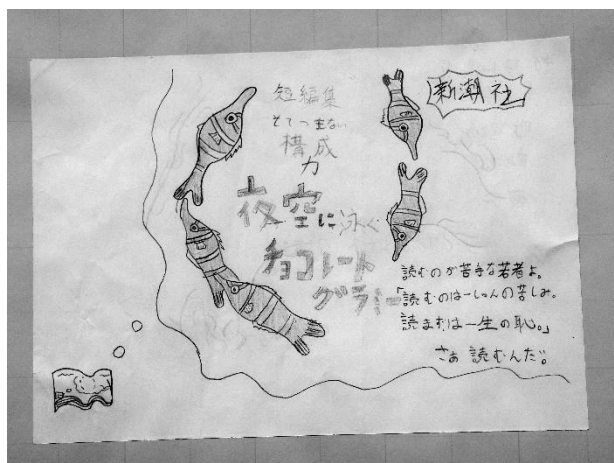 短編集
とてつもない
構成
力
夜空に泳ぐ
チョコレート
グラミー
新潮社
読むのが苦手な若者よ。
「読むのは一しゅんの苦しみ。
読まぬは一生の恥。」
さぁ 読むんだ。